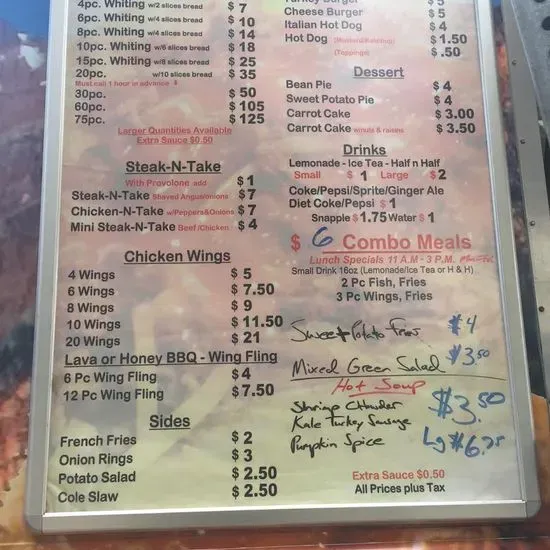 4pc. Whiting w/2 slices bread $ 7
6pc. Whiting w/4 slices bread $ 10
8pc. Whiting w/4 slices bread $ 14
10pc. Whiting w/6 slices bread $ 18
15pc. Whiting w/8 slices bread $ 25
20pc. w/10 slices bread $ 35
Must call 1 hour in advance
30pc. $ 50
60pc. $ 105
75pc. $ 125
Larger Quantities Available
Extra Sauce $0.50
Steak-N-Take
With Provolone add $ 1
Steak-N-Take Shaved Angus/onions $ 7
Chicken-N-Take w/Peppers&Onions $ 7
Mini Steak-N-Take Beef/Chicken $ 4
Chicken Wings
4 Wings $ 5
6 Wings $ 7.50
8 Wings $ 9
10 Wings $ 11.50
20 Wings $ 21
Lava or Honey BBQ - Wing Fling
6 Pc Wing Fling $ 4
12 Pc Wing Fling $ 7.50
Sides
French Fries $ 2
Onion Rings $ 3
Potato Salad $ 2.50
Cole Slaw $ 2.50
Turkey Burger $ 5
Cheese Burger $ 5
Italian Hot Dog $ 4
Hot Dog (Mustard/Ketchup) $ 1.50
(Toppings) $ .50
Dessert
Bean Pie $ 4
Sweet Potato Pie $ 4
Carrot Cake $ 3.00
Carrot Cake w/nuts & raisins $ 3.50
Drinks
Lemonade - Ice Tea - Half n Half
Small $ 1 Large $ 2
Coke/Pepsi/Sprite/Ginger Ale
Diet Coke/Pepsi $ 1
Snapple $ 1.75 Water $ 1
$ 6 Combo Meals
Lunch Specials 11 A.M - 3 P.M.
Small Drink 16oz (Lemonade/Ice Tea or H & H)
2 Pc Fish, Fries
3 Pc Wings, Fries
Sweet Potato Fries $4
Mixed Green Salad $3.50
Hot Soup
Shrimp Chowder $3.50
Kale Turkey Sausage
Pumpkin Spice Lg $6.75
Extra Sauce $0.50
All Prices plus Tax